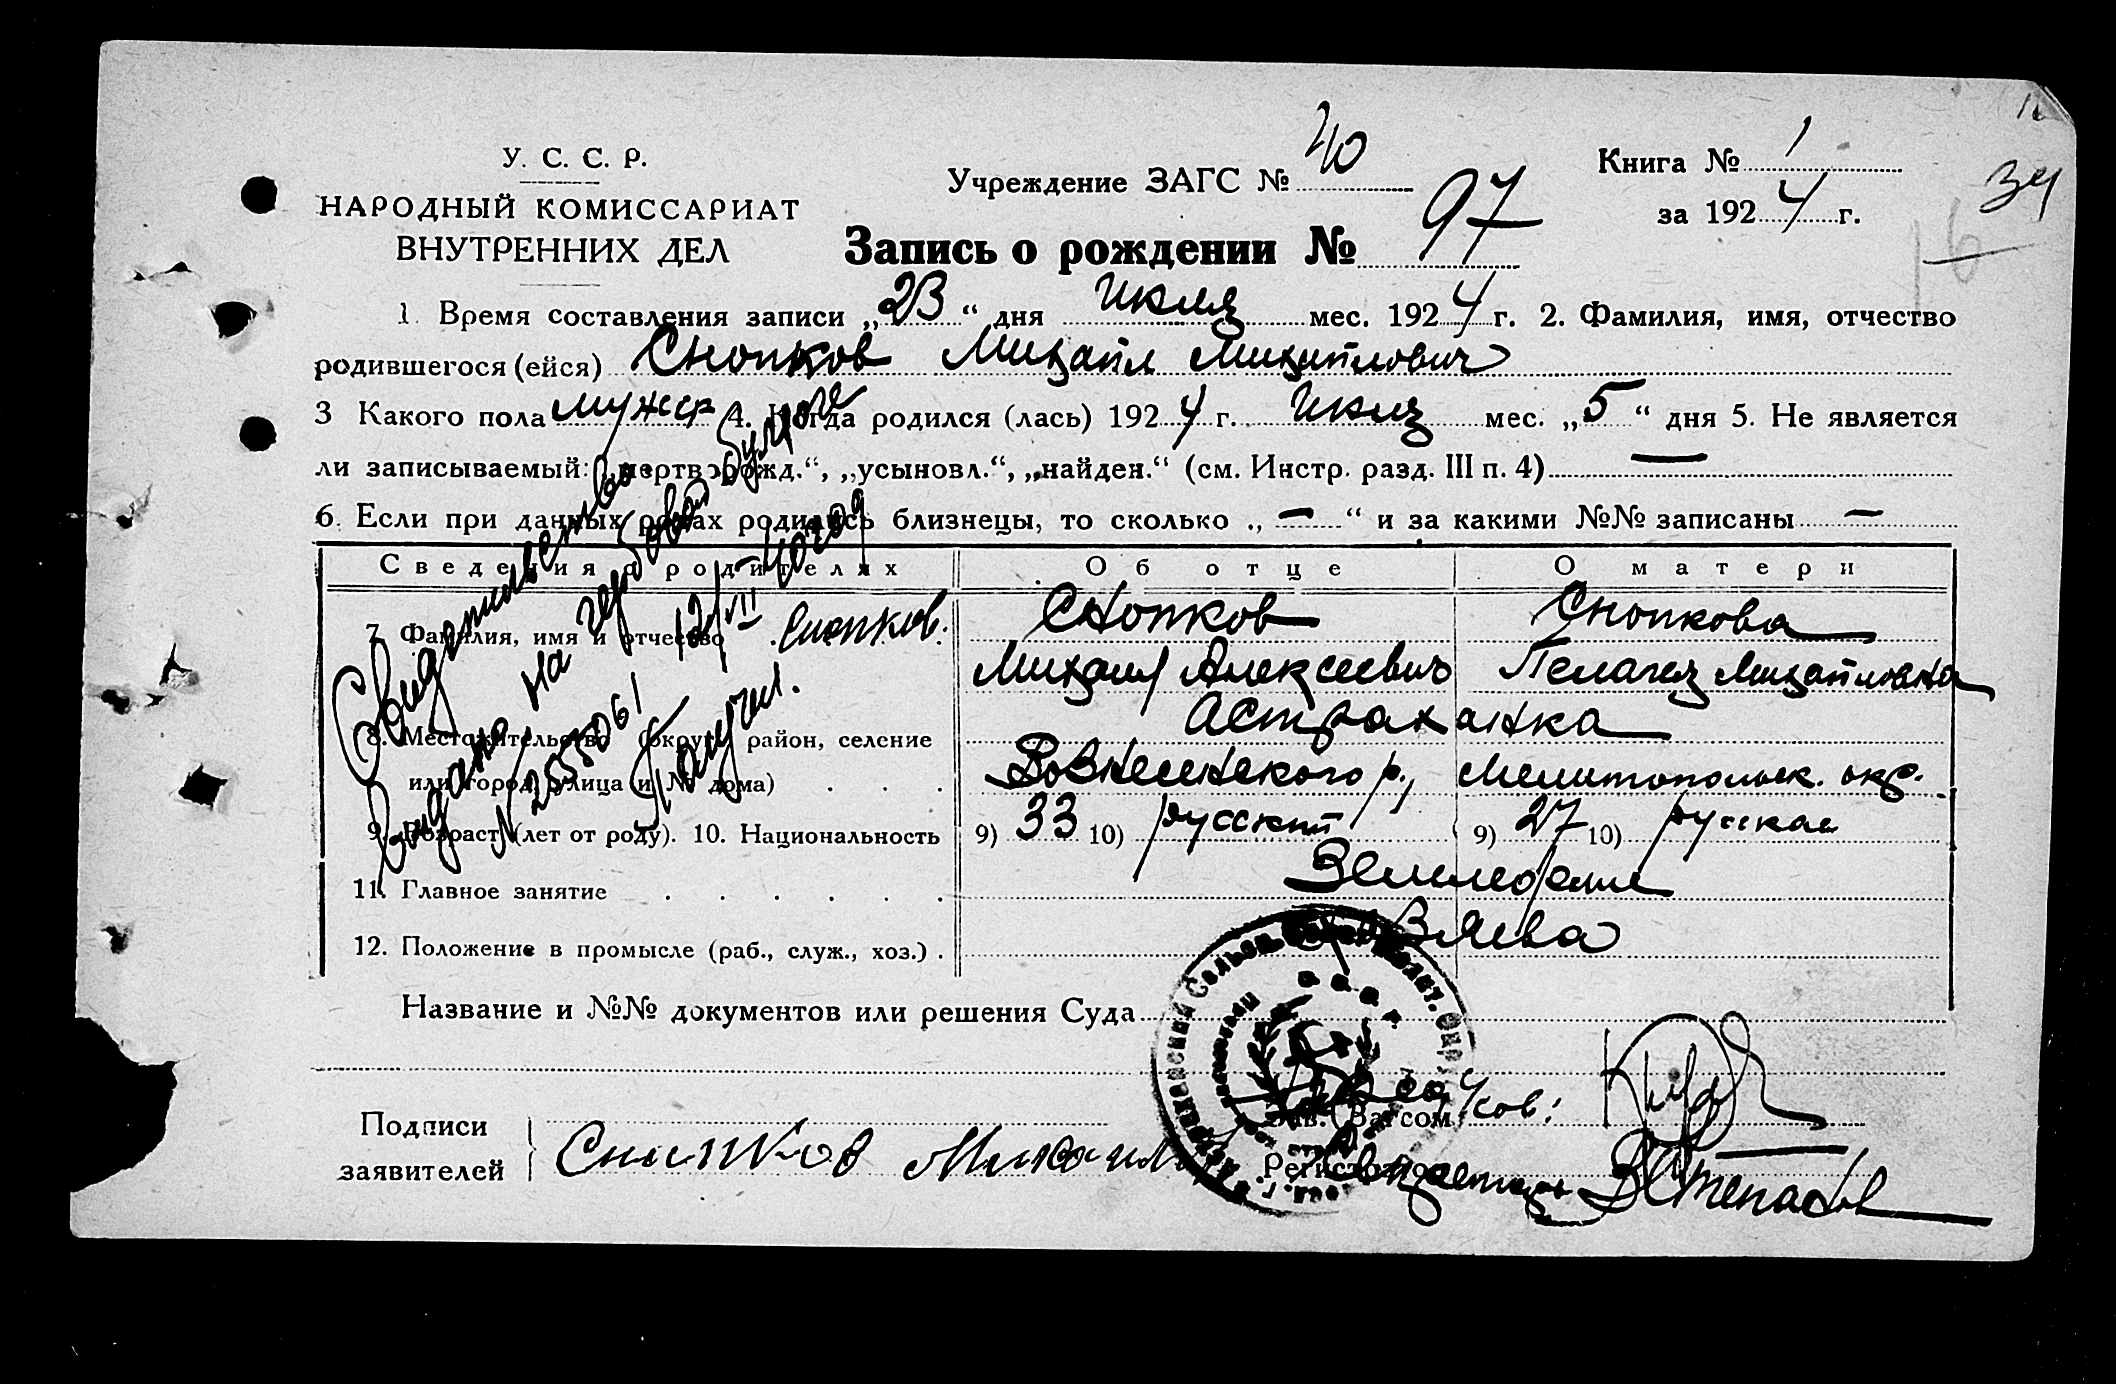 У. С. С. Р.
НАРОДНЫЙ КОМИССАРИАТ
ВНУТРЕННИХ ДЕЛ
Учреждение ЗАГС № 40
Книга № 1
за 1924 г.
34
16
Запись о рождении № 97
1. Время составления записи „23“ дня июля мес. 1924 г. 2. Фамилия, имя, отчество
родившегося (ейся) Снопков Михаил Михайлович
3 Какого пола мужск 4. Когда родился (лась) 1924 г. июля мес. „5“ дня 5. Не является
ли записываемый: „мертворожд.“, „усыновл.“, „найден.“ (см. Инстр. разд. III п. 4) —
6. Если при данных родах родились близнецы, то сколько „ — “ и за какими №№ записаны —
Сведения о родителях Об отце О матери
7. Фамилия, имя и отчество Снопков Снопкова
Михаил Алексеевич Пелагея Михайловна
Астраханка
8. Местожительство (округ, район, селение
или город, улица и № дома) Вознесенского р., Мелитопольск. окр.
9. Возраст (лет от роду). 10. Национальность 9) 33 10) русский 9) 27 10) русская
11. Главное занятие Земледелие
12. Положение в промысле (раб., служ., хоз.)
Свидетельство
выдано на гербовой бумаге
N 2055061 12/VII 40 год
Получил. Снопков.
Название и №№ документов или решения Суда
Подписи
заявителей Снопков Михаил
Зав. (Загсом)
Регистратор
Степанов